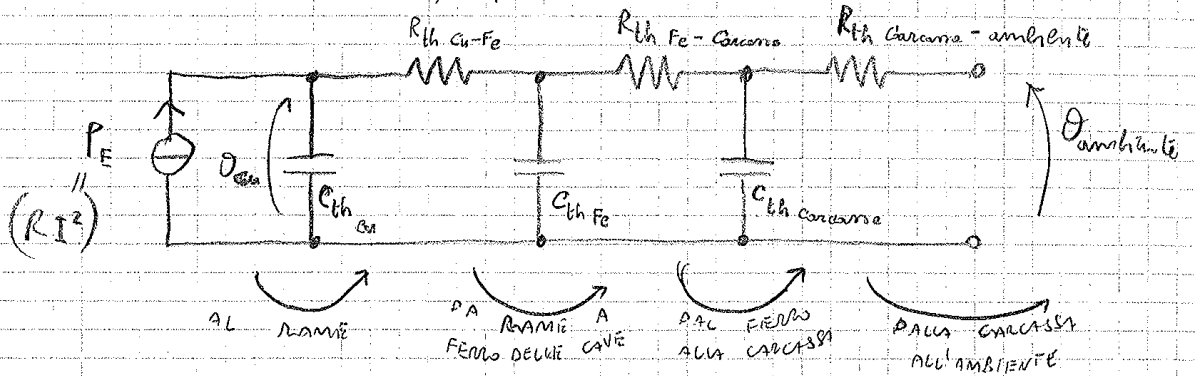 R th Cu-Fe
R th Fe - Carcassa
R th Carcassa - ambiente
P E
"
(R I²)
θ cu
C th cu
C th Fe
C th Carcassa
θ ambiente
AL RAME
DA RAME A
FERRO DELLE CAVE
DAL FERRO
ALLA CARCASSA
DALLA CARCASSA
ALL'AMBIENTE